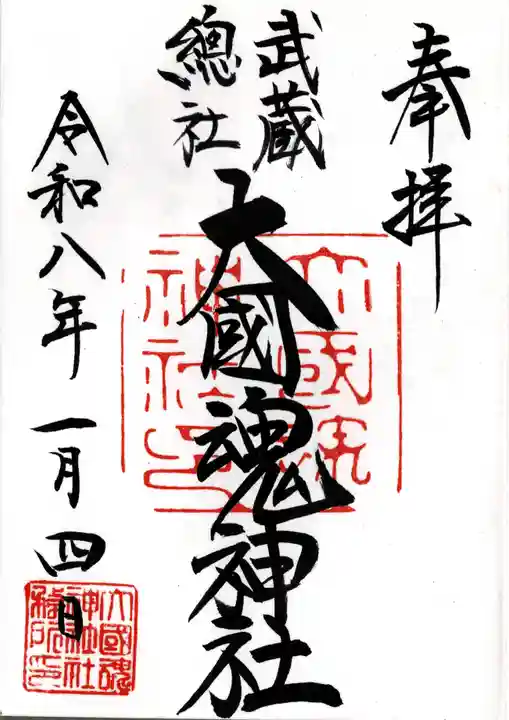 奉拝
武蔵
總社
大國魂神社
令和八年一月四日
大國魂
神社印
大國魂
神社
務所印